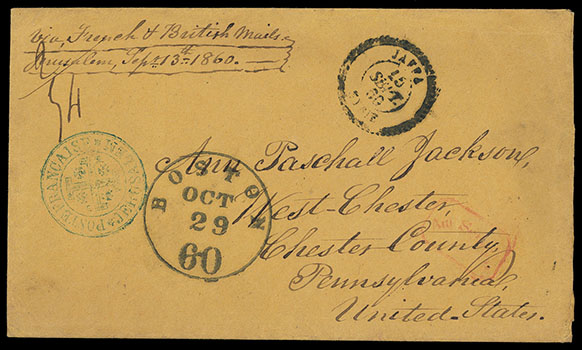 via, French & British Mails.
Jerusalem, Sept. 13th 1860.
JAFFA
15
SEPT.
60
BOSTON
OCT
29
60
POSTE FRANÇAISE
Ann Paschall Jackson,
West-Chester,
Chester County,
Pennsylvania,
United-States.